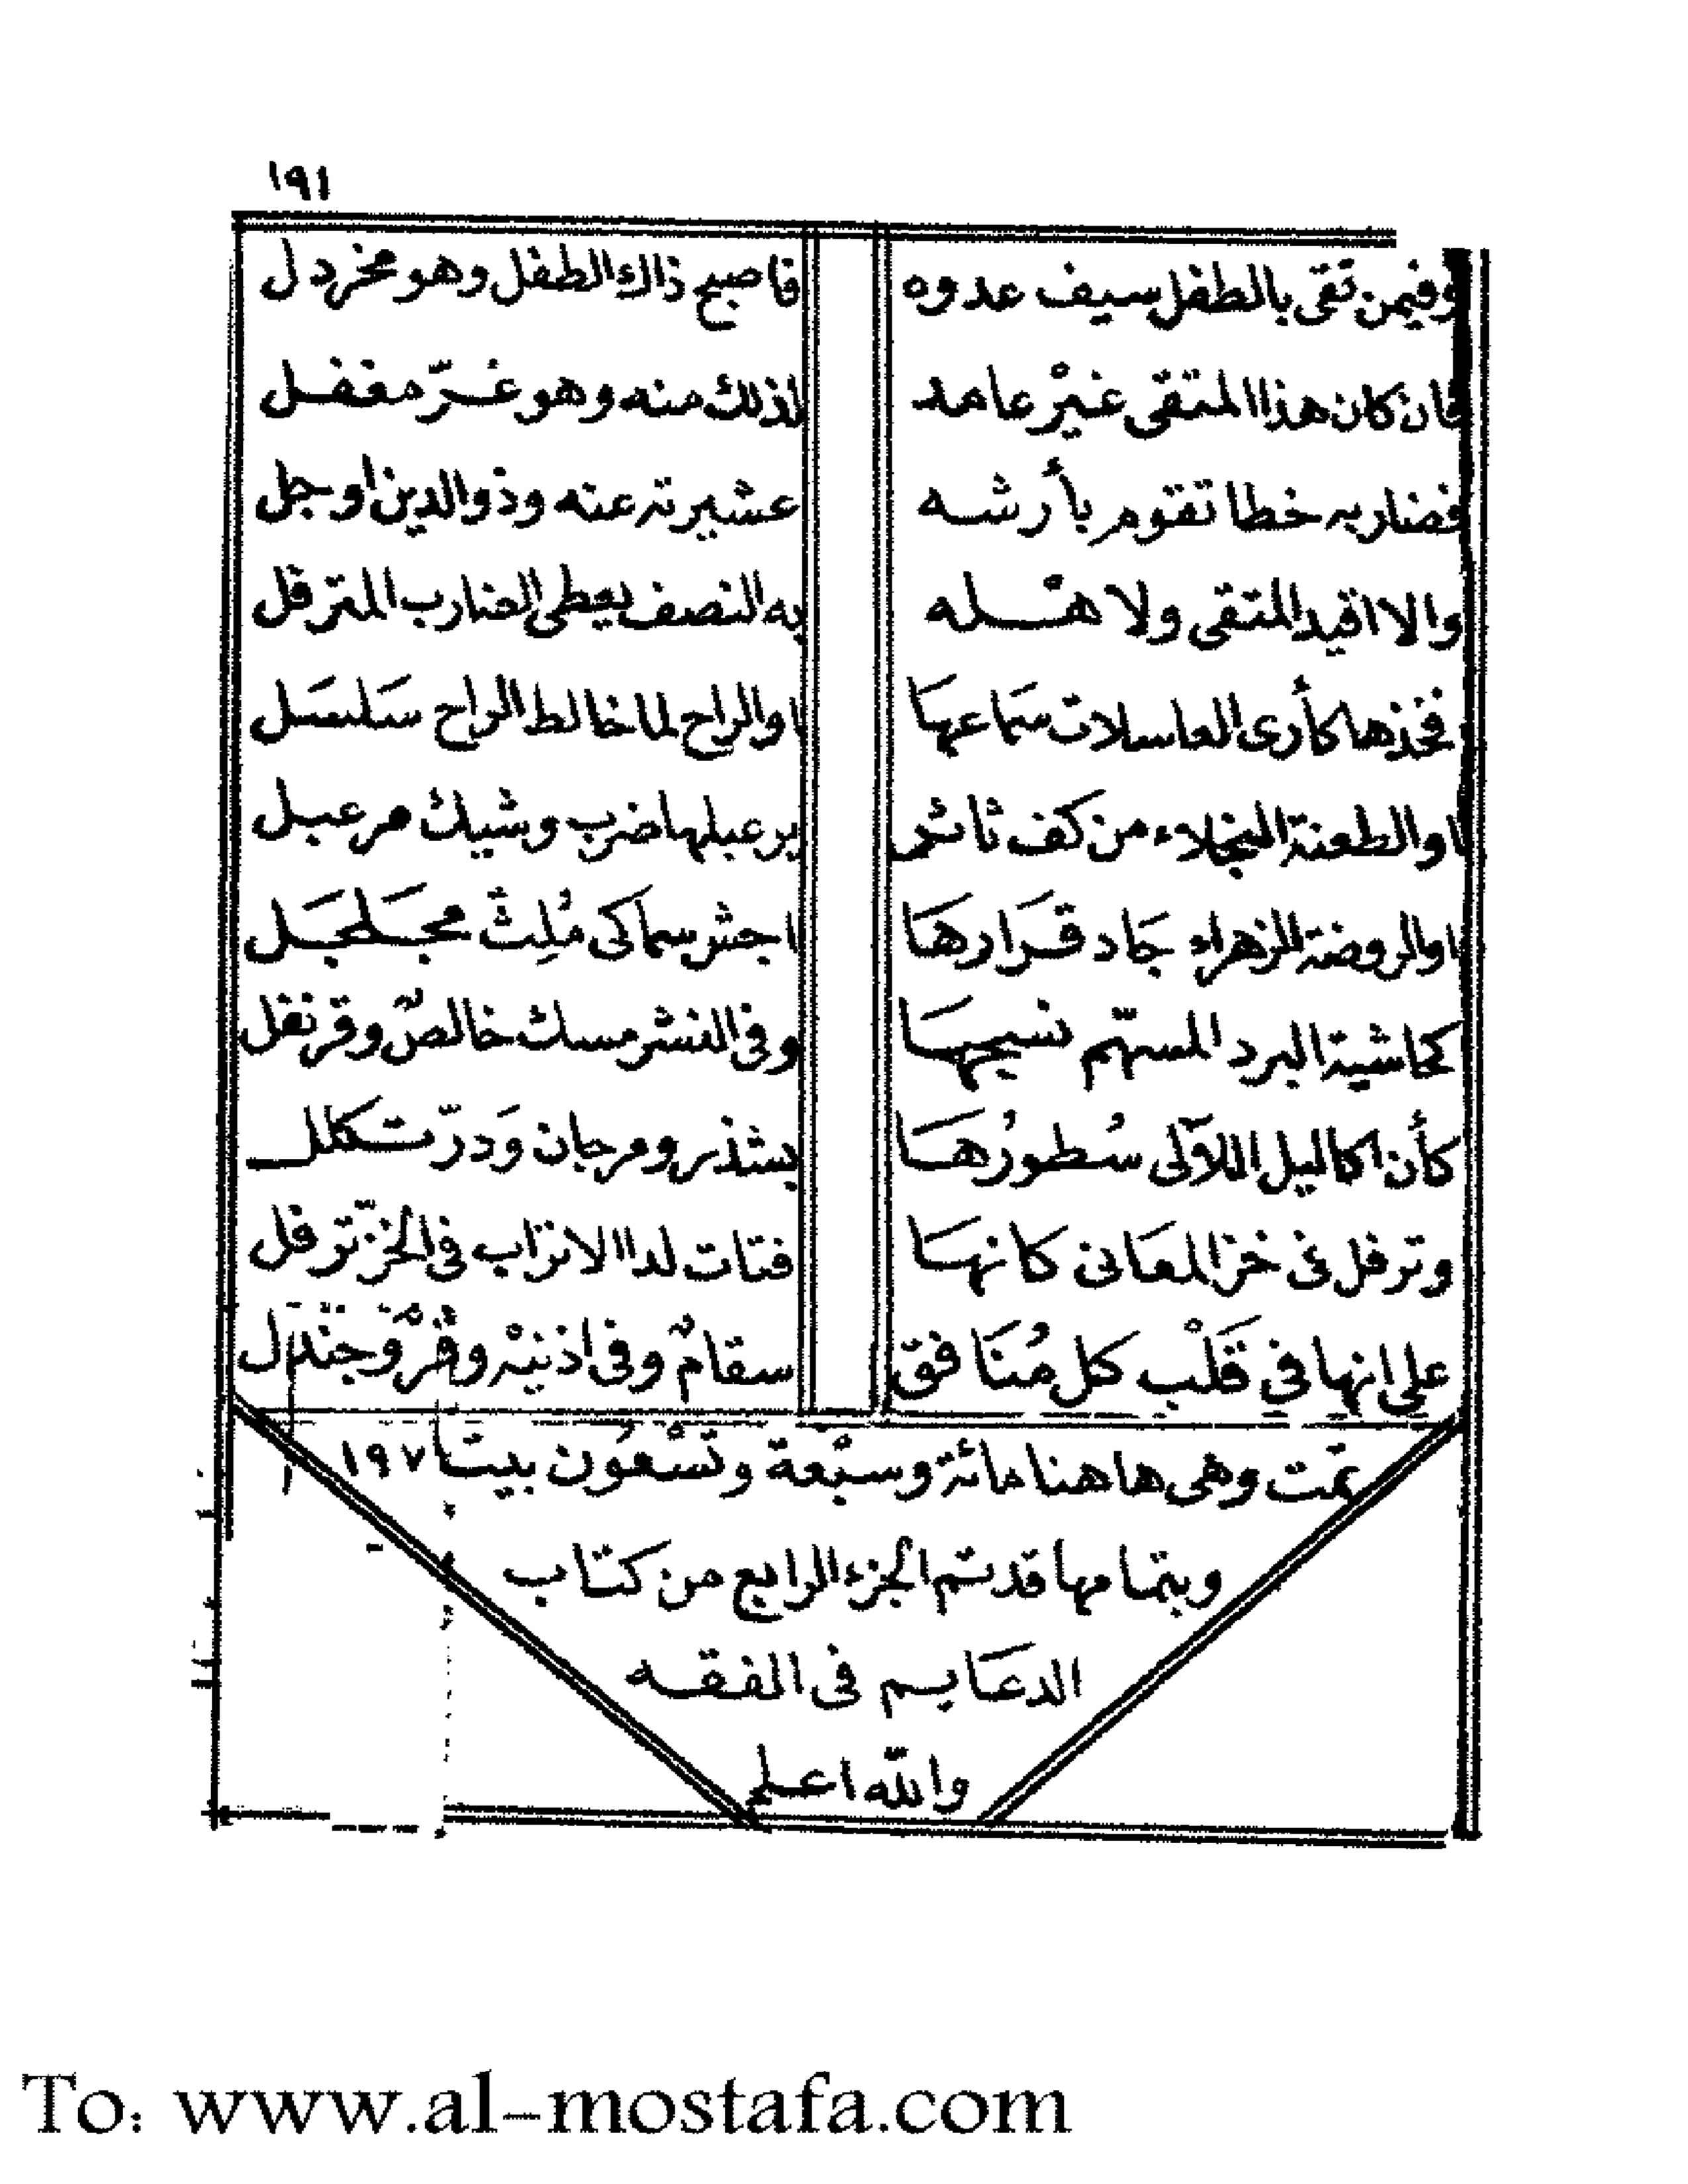 ١٩١
وفيمن تقى بالطفل سيف عدوه فاصبح ذاك الطفل وهو مخردل
فان كان هذا المتقى غيْر عامد لذلك منه وهو غرّ مغفل
فضاربه خطا تقوم بأرشه عشيرته عنه وذو الدين اوجل
والا اقيد المتقى ولاهْله به النصف يعطى الضارب المترفل
فخذها كأرى العاسلات سَماعهَا او الراح لما خالط الراح سَلسَل
او الطعنة النجلاء من كف ثائر يرعبلها ضرب وشيك مرعبل
او الروضة الزهراء جَاد قَرَارهَا اجش سماكى مُلِثّ مجَلجَل
كحاشية البرد المسهّم نسيجهَا وفى النشر مسك خالصٌ وقرنفل
كأن اكاليل اللآلى سُطورُهَا بشذر ومرجان وَدرّ تكلل
وترفل فى خز المعَانى كانهَا فتات لدا الاتراب فى الخزّ ترفل
على انها فى قَلْب كل مُنَافق سقامٌ وفى اذنيْه وقْرٌ وجنْدل
تمت وهى هاهنا مائة وسبْعة وتسْعُون بيتا ١٩٧
وبتمامها قد تم الجزء الرابع من كتاب
الدعَايم فى الفقه
والله اعلم
To: www.al-mostafa.com